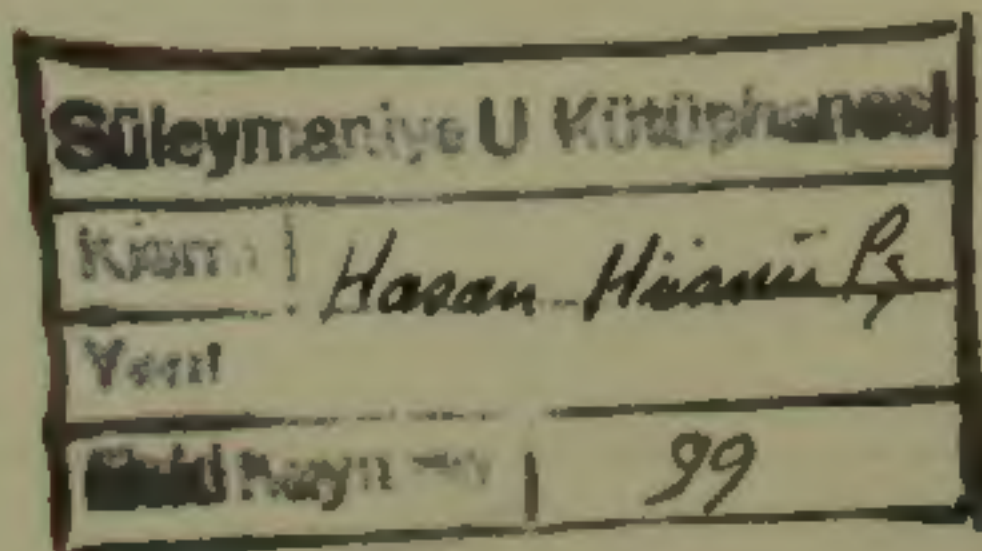 Süleymaniye U Kütüphanesi
Kısmı Hasan Hüsnü Pş
Yeni
Eski Kayıt No 99